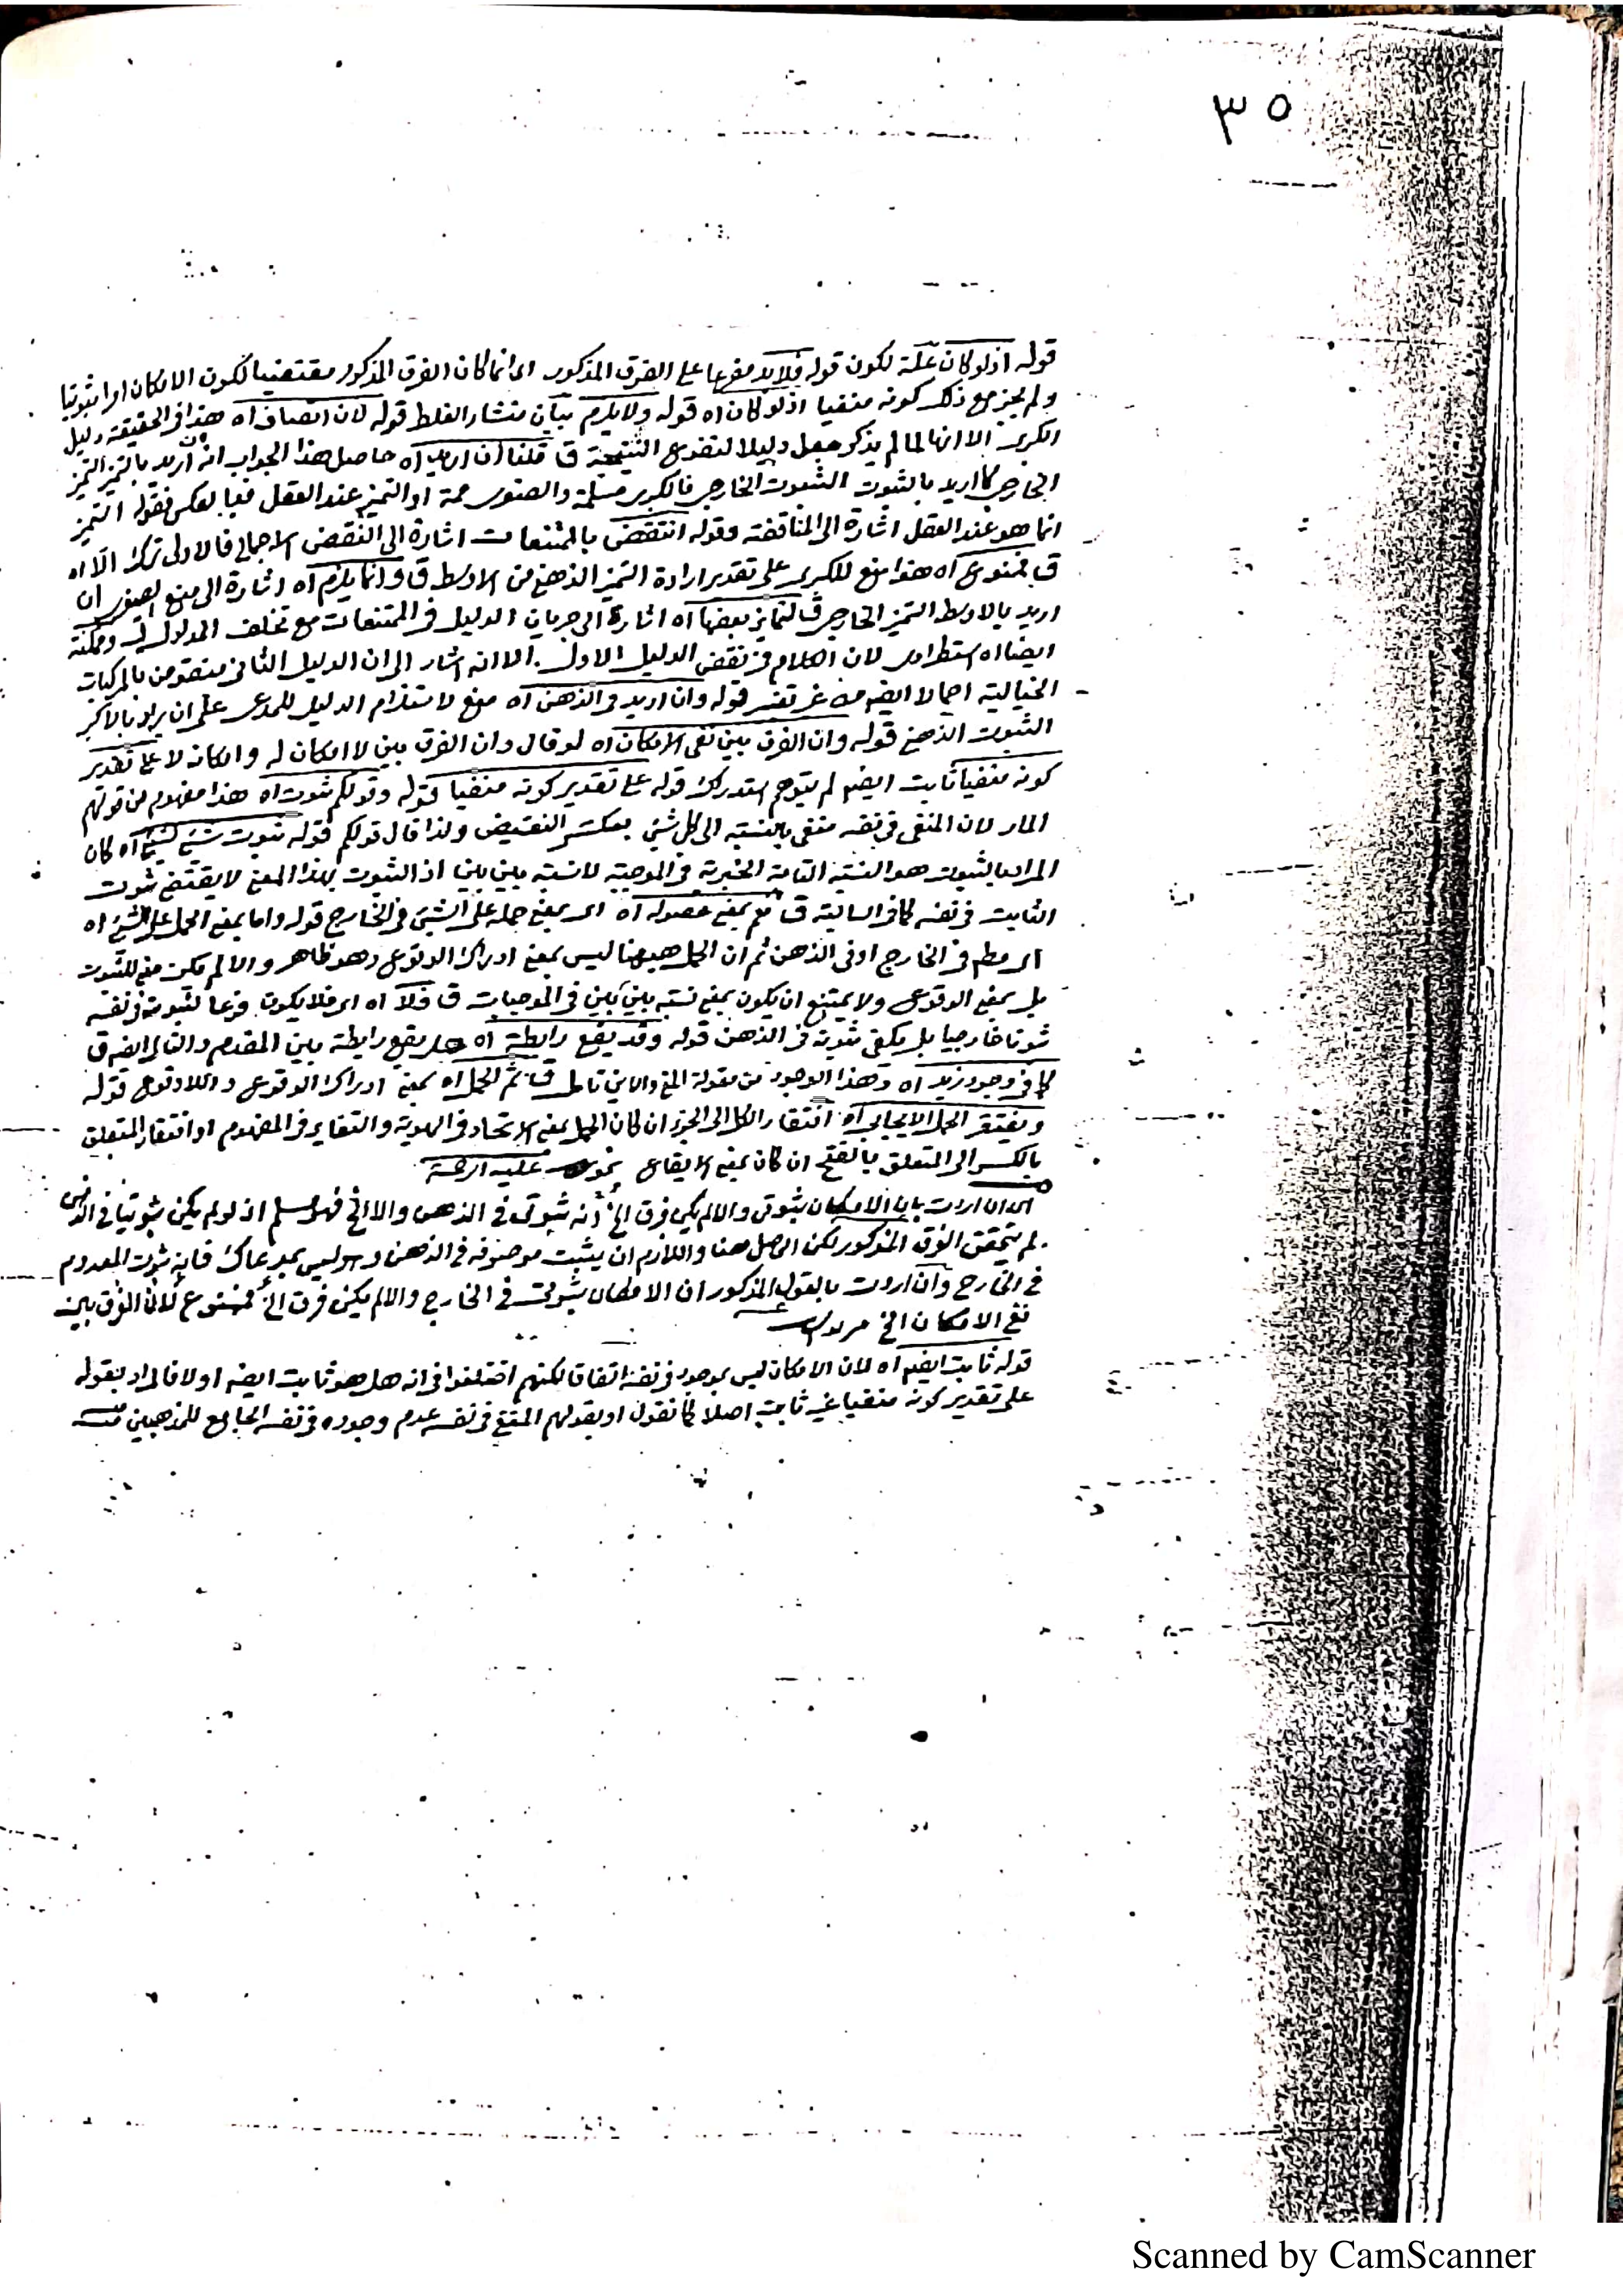 ٣٥
قوله اذ لو كان علة لكون قوله فلا بد مفرعا على الفرق المذكور اى انما كان الفرق المذكور مقتضيا لكون الامكان امرا ثبوتيا
ولم يجز مع ذلك كونه منفيا اذ لو كان اه قوله ولا يلزم بيان منشاء الغلط قوله لان اتصاف اه هذا فى الحقيقة دليل
الكبرى الا انها لما لم يذكر جعل دليلا لتفرع النتيجة ق قلنا ان اريد اه حاصل هذا الجواب انه ان اريد بالتميز التميز
الخارجى كما اريد بالثبوت الثبوت الخارجى فالكبرى مسلمة والصغرى مم او التميز عند العقل فبالعكس فقوله التميز
انما هو عند العقل اشارة الى المناقضة وقوله انتقض بالممتنعات اشارة الى النقض الاجمالى فالاولى ترك الا اه
ق فممنوع اه هذا منع للكبرى على تقدير ارادة التميز الذهنى من الاوسط ق وانما يلزم اه اشارة الى منع الصغرى ان
اريد بالاوسط التميز الخارجى ق لتمايز بعضها اه اشارة الى جريان الدليل فى الممتنعات مع تخلف المدلول ق وممكنة
ايضا اه استطرادى لان الكلام فى نقض الدليل الاول الا انه اشار الى ان الدليل الثانى منقوض بالمركبات
الخيالية اجمالا ايضه من غير تفسير قوله وان اريد فى الذهن اه منع لاستلزام الدليل للمدعى على ان يراد بالاكبر
الثبوت الذهنى قوله وان الفرق بين نفى الامكان اه لو قال وان الفرق بين لا امكان له وامكانه لا على تقدير
كونه منفيا ثابت ايضه لم يتوهم استدراك قوله على تقدير كونه منفيا قوله وقولكم ثبوت اه هذا مفهوم من قولهم
المار لان المنفى فى نفسه منفى بالنسبة الى كل شئ بعكس النقيض ولذا قال قولكم قوله ثبوت شئ لشئ اه كان
المراد بالثبوت هو النسبة التامة الخبرية فى الموجبة لا نسبة بين بين اذ الثبوت بهذا المعنى لا يقتضى ثبوت
الثابت فى نفسه كما فى السالبة ق نعم بمعنى حصوله اه اى بمعنى حمله على الشئ فى الخارج قوله واما بمعنى الحمل على الشئ اه
اى مط فى الخارج او فى الذهن ثم ان الحمل ههنا ليس بمعنى ادراك الوقوع وهو ظاهر والا لم يكن معنى للثبوت
بل بمعنى الوقوع ولا يمتنع ان يكون بمعنى نسبة بين بين فى الموجبات ق فلا اه اى فلا يكون فرعا لثبوته فى نفسه
ثبوتا خارجيا بل يكفى ثبوته فى الذهن قوله وقد يقع رابطة اه هل يقع رابطة بين المقدم والتالى ايضه ق
كما فى وجود زيد اه وهذا الوجود من مقولة المتى والاين تامل ق ثم الحمل اه بمعنى ادراك الوقوع واللاوقوع قوله
ويفتقر الحمل الايجابى اه افتقار الكل الى الجزء ان كان الحمل بمعنى الاتحاد فى الهوية والتغاير فى المفهوم او افتقار المتعلق
بالكسر الى المتعلق بالفتح ان كان بمعنى الايقاع عليه الرحمة
اى ان اردت بان الامكان ثبوتى والا لم يكن فرق الخ انه ثبوتى فى الذهن والا الخ فهو مسلم اذ لو لم يكن ثبوتيا فى الذهن
لم يتحقق الفرق المذكور لكن الحاصل هنا واللازم ان يثبت موصوفه فى الذهن وهو ليس بمدعاك فانه ثبوت المعدوم
فى الخارج وان اردت بالقول المذكور ان الامكان ثبوتى فى الخارج والا لم يكن فرق الخ فممنوع لان الفرق بين
نفى الامكان الخ
قوله ثابت ايضه اه لان الامكان ليس بموجود فى نفسه اتفاقا لكنهم اختلفوا فى انه هل هو ثابت ايضه او لا فالمراد بقوله
على تقدير كونه منفيا غير ثابت اصلا كما نقول او بقولهم المنفى فى نفسه عدم وجوده فى نفسه الجامع للمذهبين منه
Scanned by CamScanner